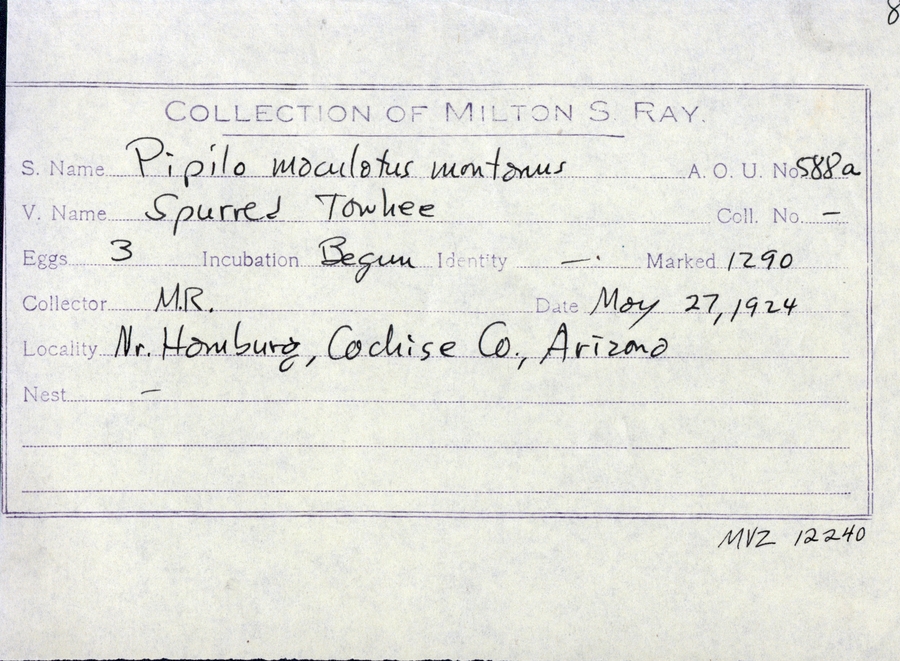 8
COLLECTION OF MILTON S. RAY.
S. Name Pipilo maculatus montanus A. O. U. No 588a
V. Name Spurred Towhee Coll. No. –
Eggs 3 Incubation Begun Identity –. Marked 1290
Collector M.R. Date May 27, 1924
Locality Nr. Hamburg, Cochise Co., Arizona
Nest –
MVZ 12240